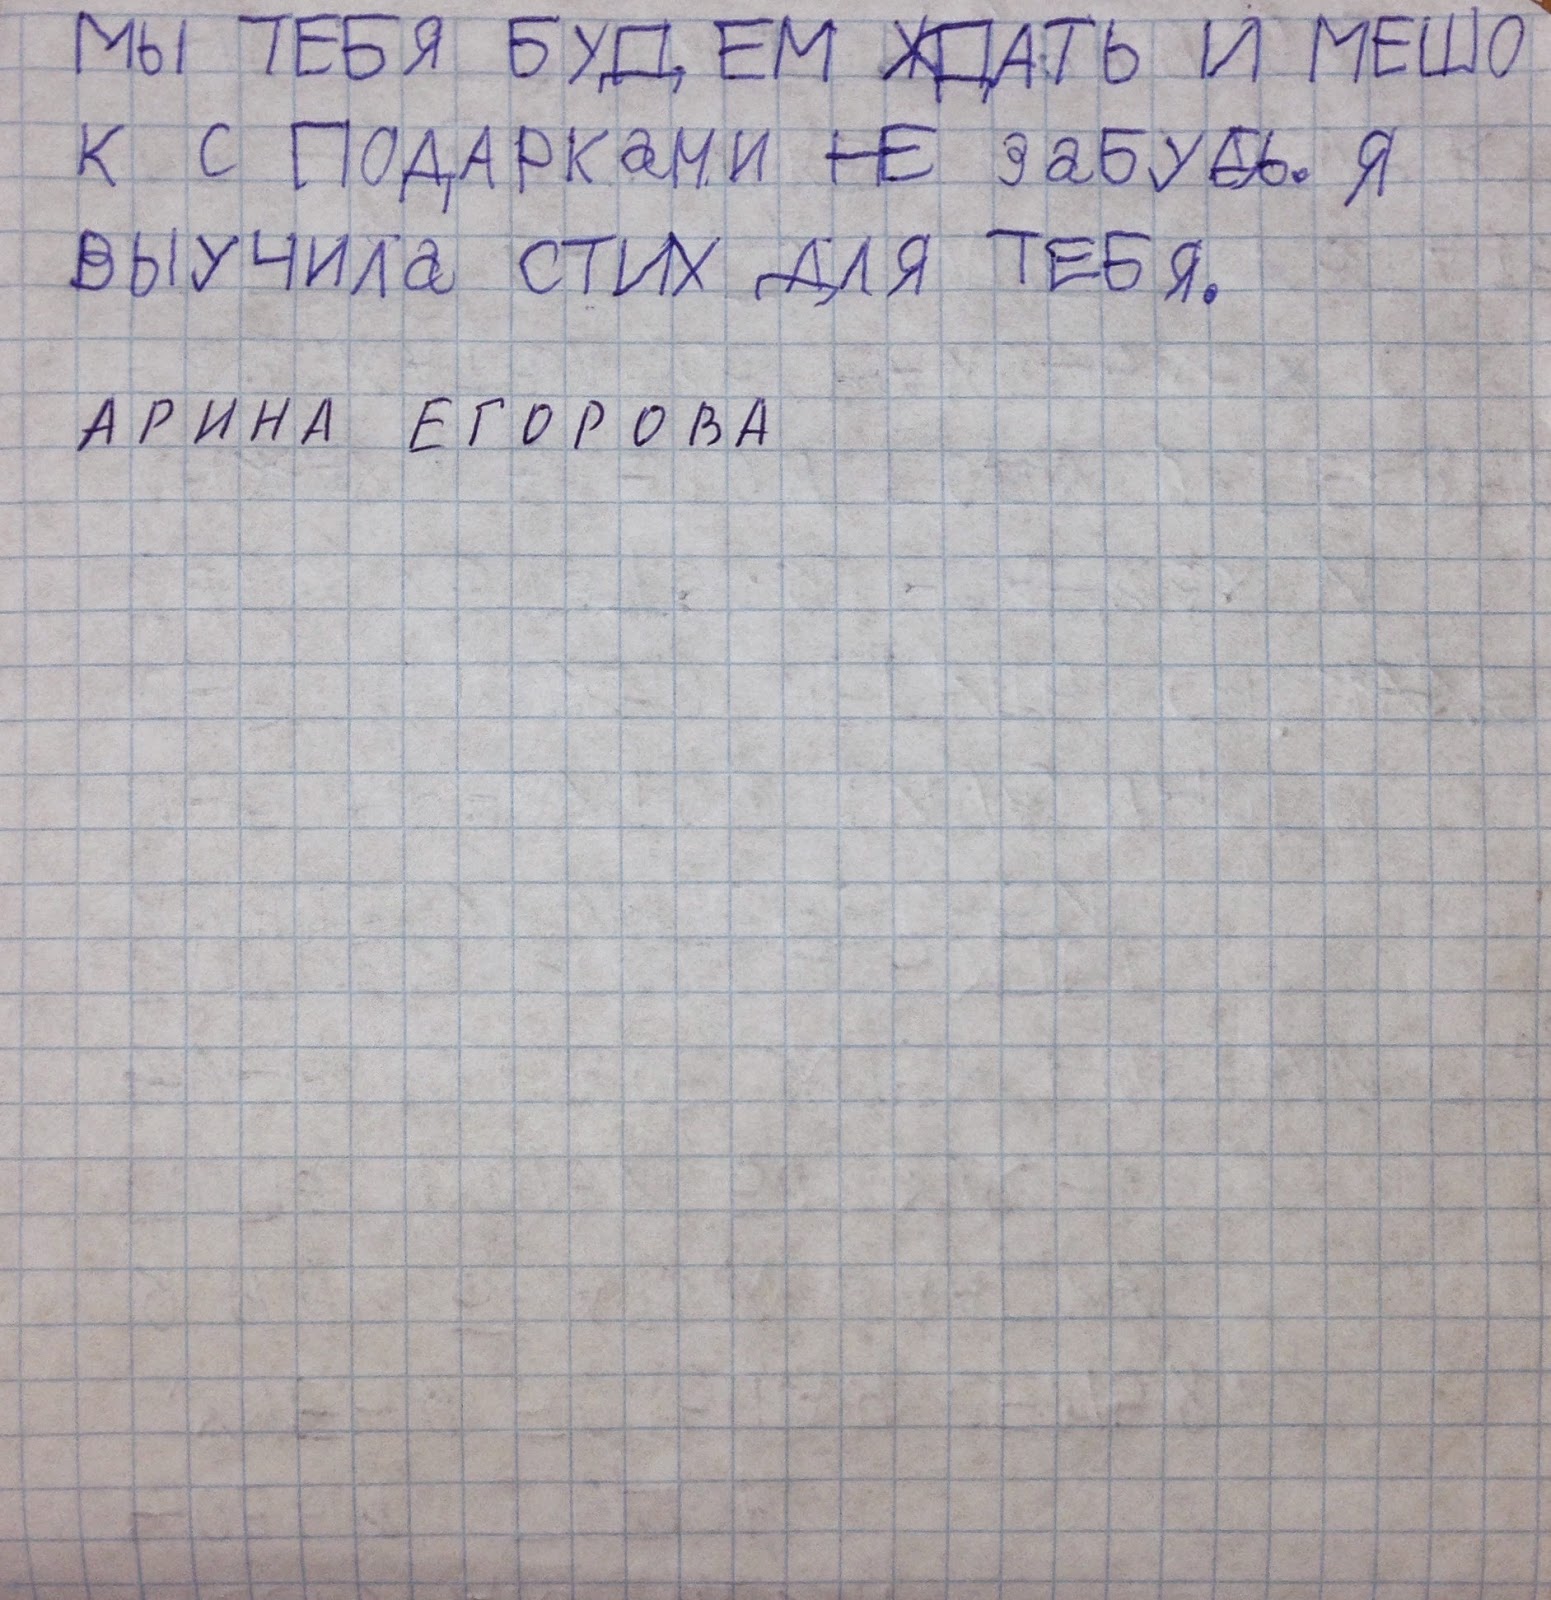 МЫ ТЕБЯ БУДЕМ ЖДАТЬ И МЕШО
К С ПОДАРКаМИ НЕ ЗаБУДЬ. Я
ВЫУЧИЛа СТИХ ДЛЯ ТЕБЯ.
АРИНА ЕГОРОВА